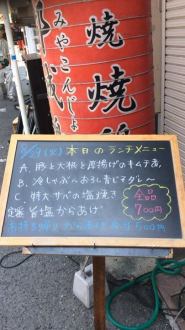 焼
焼
みやこんじょ
(火) 本日のランチメニュー
A. 豚と大根と厚揚げのキムチ煮
B. 冷しゃぶ おろし青じそダレ〜
C. 特大サバの塩焼き
定番 旨塩からあげ
全品
700円
500円